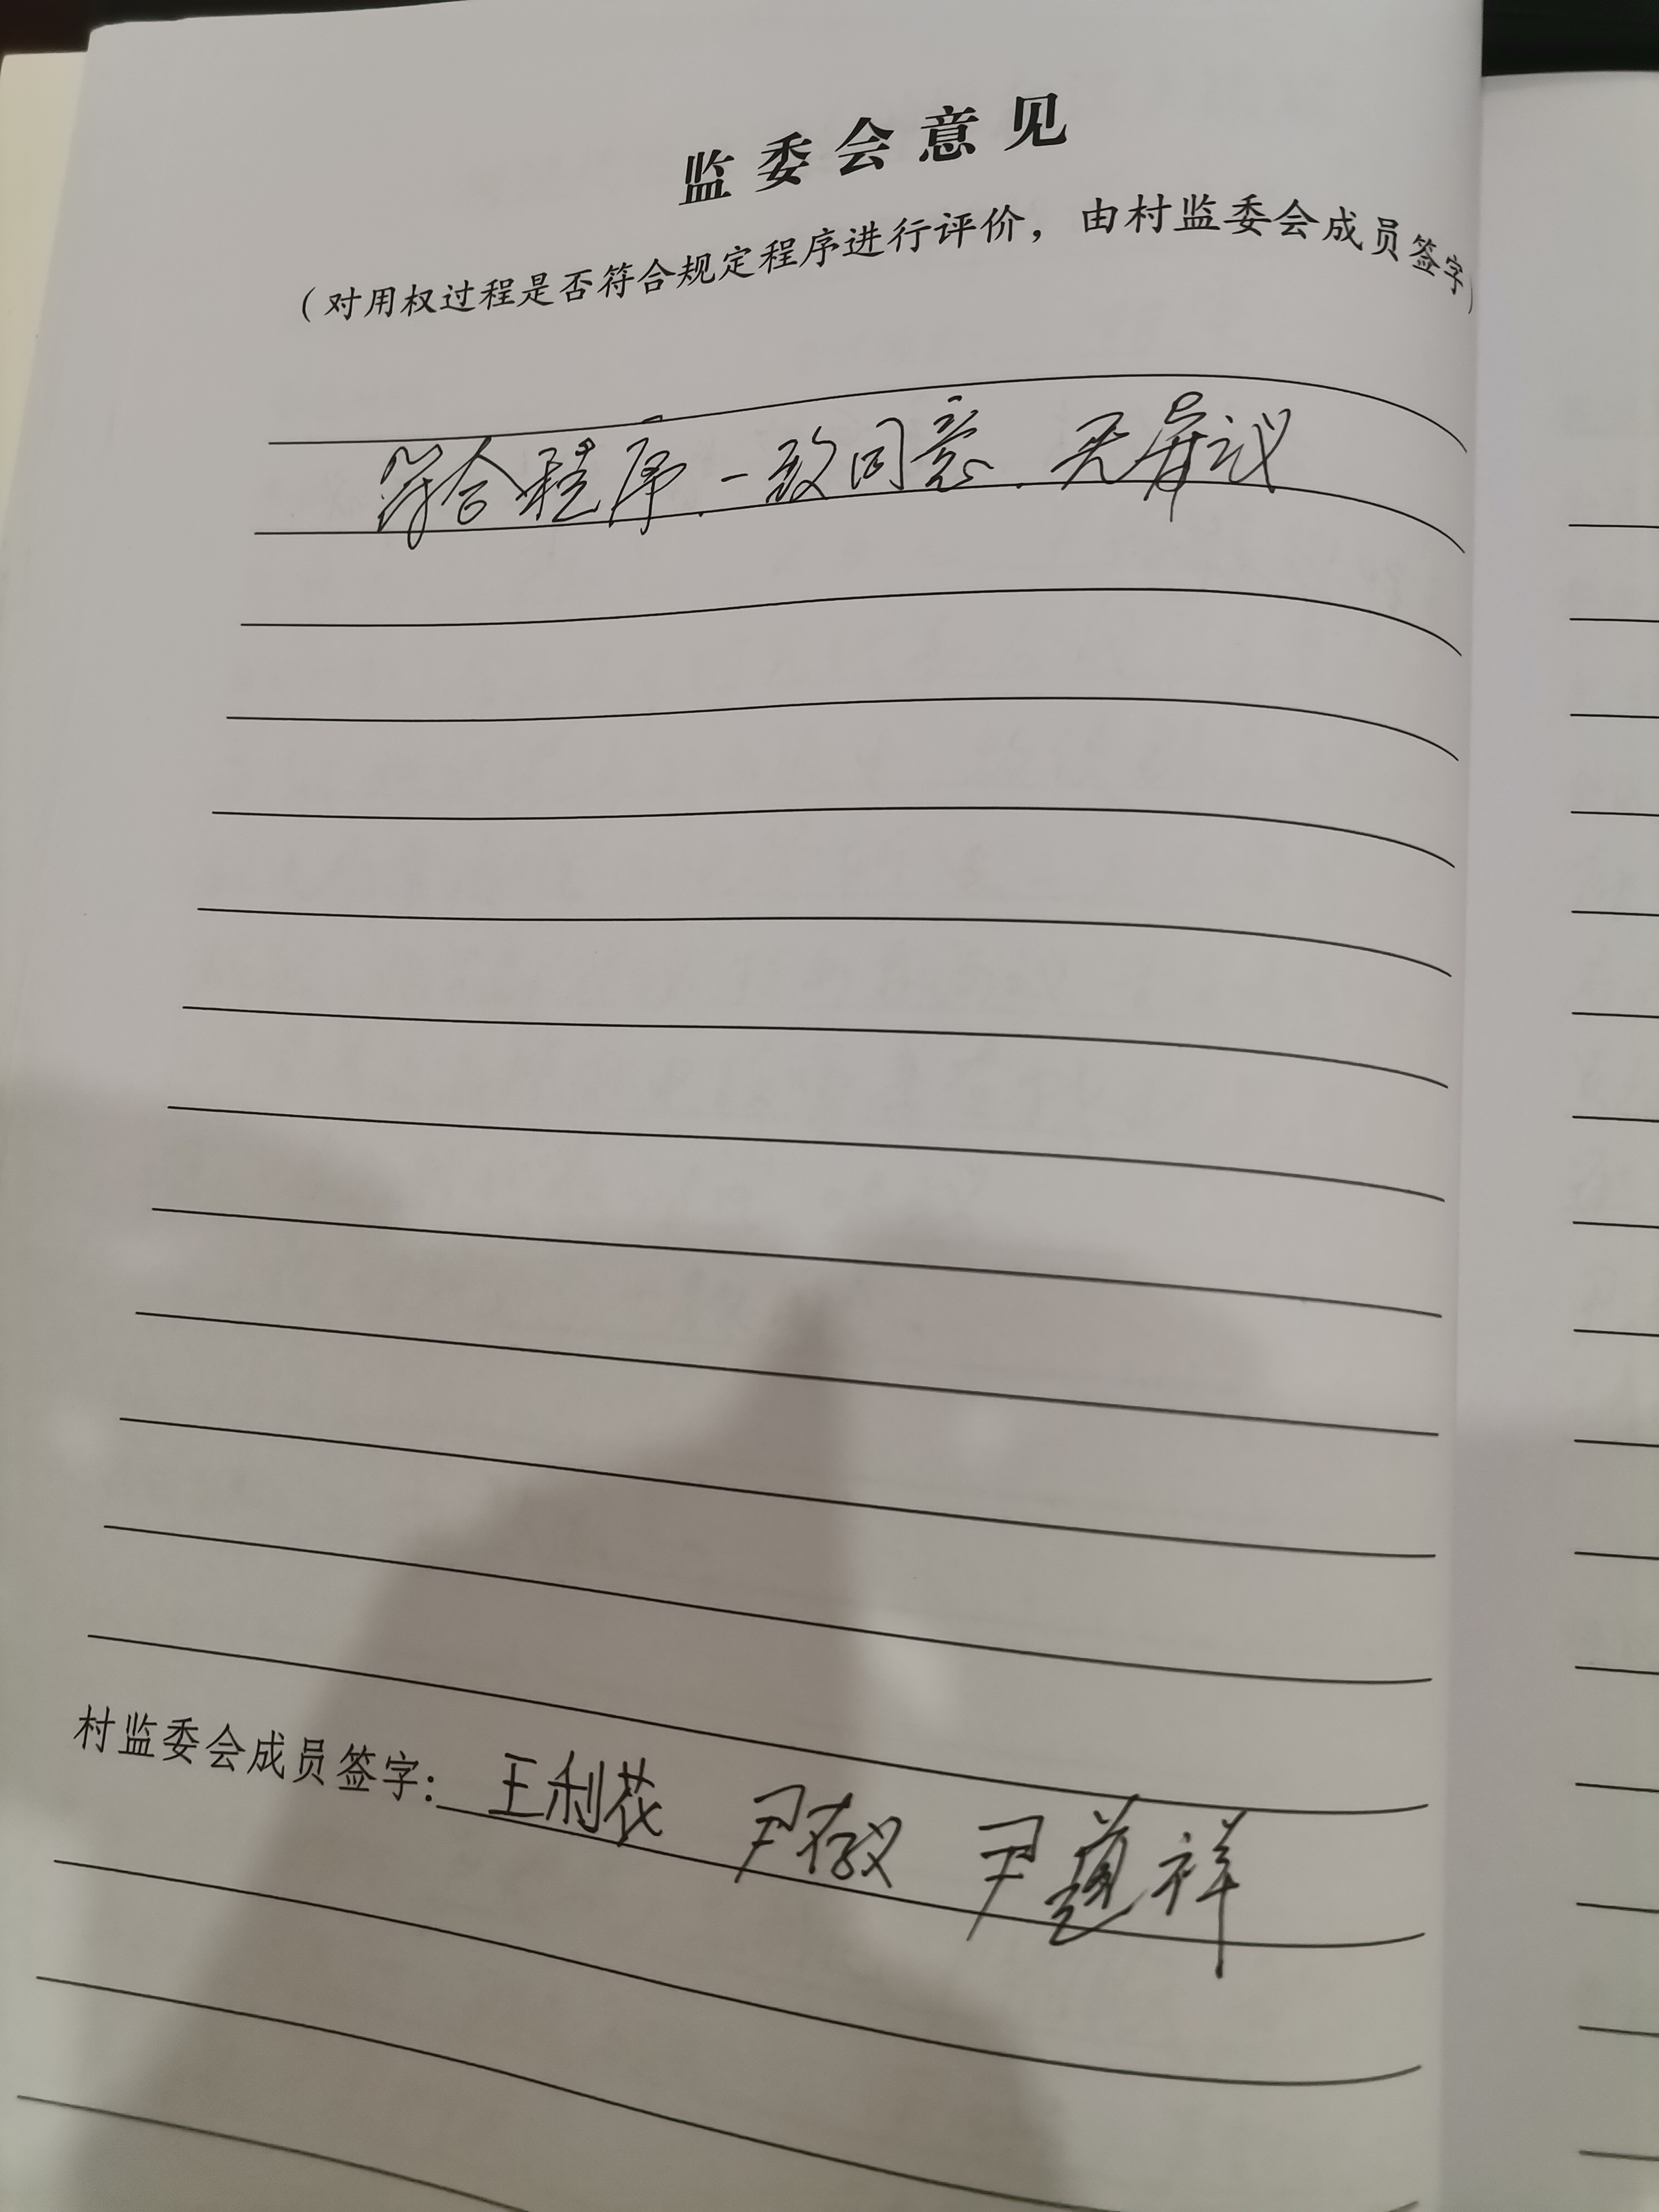 监委会意见
（对用权过程是否符合规定程序进行评价，由村监委会成员签字）
符合程序.一致同意.无异议
村监委会成员签字：王利花 尹存义 尹 祥